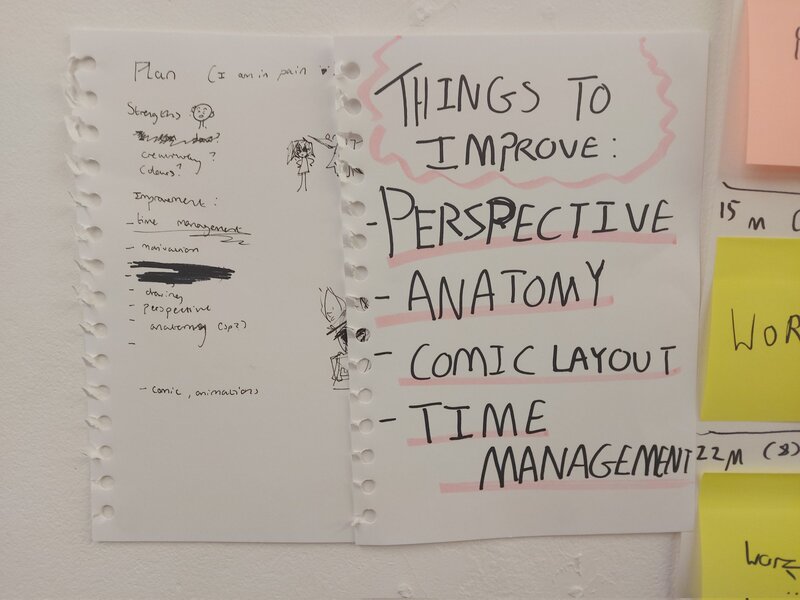 Plan (I am in pain
Strengths
creativity ?
Ideas?
Improvement :
- time management
- motivation
-
- drawing
- perspective
- anatomy (sp?)
-
- comic, animations
THINGS TO
IMPROVE :
- PERSPECTIVE
- ANATOMY
- COMIC LAYOUT
- TIME
MANAGEMENT
15 M (
WOR
22 M (8)